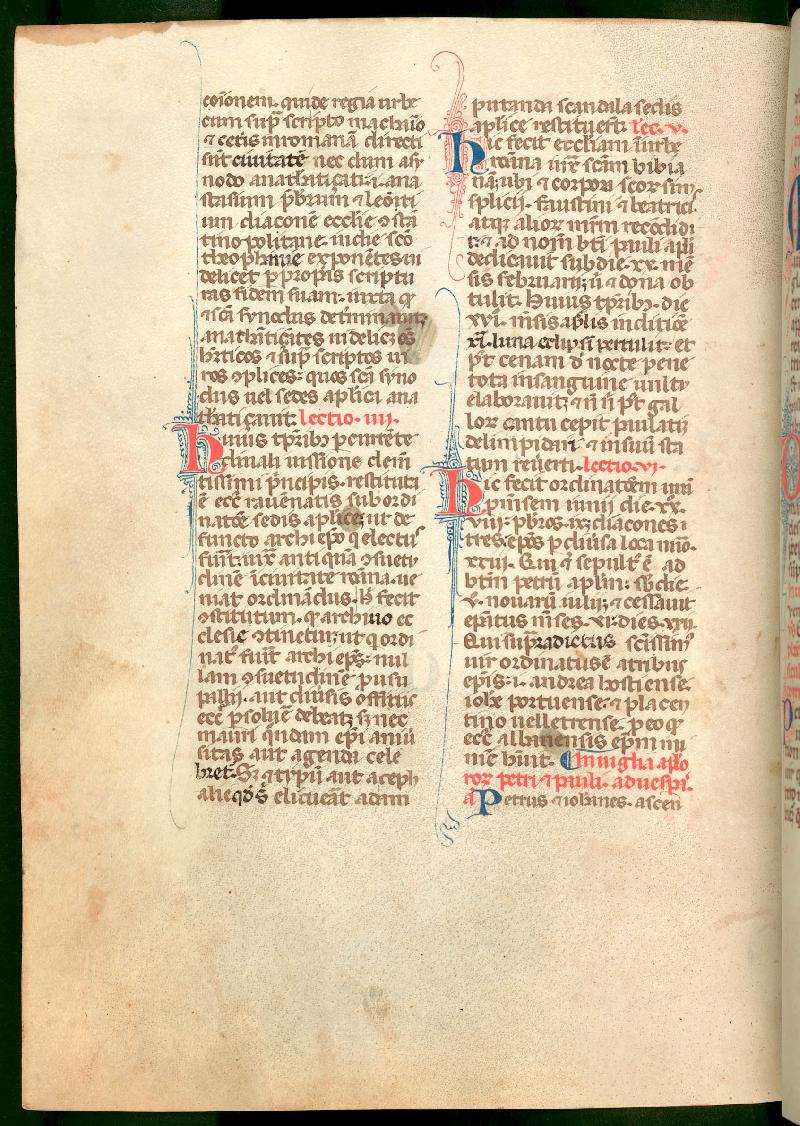 coĩonem. qui de regia urbe
cum sup̃ scripto machario
⁊ cet̃is in romanã directi
sũt ciuitatẽ nec dum ast
modo anath̃iticati. i. ana
stasium p̃brum ⁊ leõti
um diaconẽ ecclie ꝯsta
tinopolitane. in die scõ
theophanie exponẽtes in
delicet p propriis scriptu
ras fidem suam. iuxta q̃
⁊ scã synodus det̃minauit
anath̃iticãtes uidelicet oẽs
h̃eticos ⁊ sup̃ scriptos ui
ros ꝯplices. quos scã syno
dus uel sedes aplica ana
th̃aticauit. lectio. iiij.
Huius tp̃ribꝫ percurrẽte
diuali iussione clem̃
tissimi p̃ncipis. restituta
ẽ ecc̃ rauẽnatis sub ordi
natõe sedis aplice. ut de
functo archiep̃o q̃ electus
fuit. iux̃ antiquã ꝯsuetu
dinẽ ĩ ciuitate romã. ue
niat ordinãdus. h̃ fecit
ꝯstitutum. q̃ archiuo ec
clesie ꝯtinetur. ut q ordi
nat᷒ fuit archiep̃s. nul
lam ꝯsuetudinẽ p usu
pallij. aut diuersis offitiis
ecc̃ p̃soluẽ debeat. sꝫ nec
mauri quondam ep̃i anni
sitas aut agenda cele
bret. Sꝫ ⁊ typũ aut aceph
alie q̃d s̃ elicueãt ad am
putanda scandala sedis
aplice restituert. lec. v.
Hic fecit eccliam ĩ urbe
romana iux̃ scãm bibia
nã. ubi ⁊ corpora scorꝫ sim
plicij. faustini ⁊ beatricis
atqꝫ aliorꝫ mr̃m recõdidi
t. ⁊ ad nom̃ bt̃i pauli apli
dedicauit sub die. xx. mẽ
sis februarij. ũ ⁊ dona ob
tulit. Huius tp̃ribꝫ. die
xvi. mẽsis aplis indictiõe
xi. luna eclipsĩ pertulit. et
p̃t cenam d̃ nocte pene
tota in sanguine uultu
elaborauit. ⁊ ñ ñ p̃t gal
lorꝫ cantũ cepit paulatĩ
delimpidari ⁊ in suũ sta
tum reuerti. lectio. vi.
Hic fecit ordinatõem unã
p mẽsem iunij die. xx.
viij. p̃bros. ix. diacones
tres. ep̃os p diũsa loca nũo.
xxiij. Qui ⁊ sepult᷒ ẽ ad
bt̃m petrũ aplm. sb die
v. nonarũ iulij. ⁊ cessauit
ep̃atus m̃ses. xi. dies. xxij.
Qui sup̃radictus scissim᷒
uir ordinatus ẽ a tribus
ep̃is. i. andrea hostiense.
ioh̃e portuense. ⁊ placen
tino uelletrense. p eo q̃
ecc̃ albanensis ep̃m mi
nĩe h̃uit. In uigilia aplo
rorꝫ petri ⁊ pauli. ad uesp̃.
a. Petrus ⁊ ioh̃nes. ascen